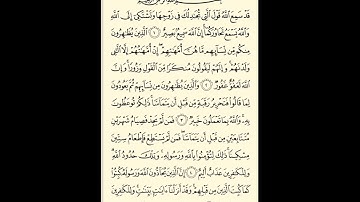 قَدْ سَمِعَ ٱللَّهُ قَوْلَ ٱلَّتِي تُجَٰدِلُكَ فِي زَوْجِهَا وَتَشْتَكِيٓ إِلَى ٱللَّهِ
وَٱللَّهُ يَسْمَعُ تَحَاوُرَكُمَآ إِنَّ ٱللَّهَ سَمِيعُۢ بَصِيرٌ ١ ٱلَّذِينَ يُظَٰهِرُونَ
مِنكُم مِّن نِّسَآئِهِم مَّا هُنَّ أُمَّهَٰتِهِمْ إِنْ أُمَّهَٰتُهُمْ إِلَّا ٱلَّٰٓـِٔي
وَلَدْنَهُمْ وَإِنَّهُمْ لَيَقُولُونَ مُنكَرًا مِّنَ ٱلْقَوْلِ وَزُورًا وَإِنَّ
ٱللَّهَ لَعَفُوٌّ غَفُورٌ ٢ وَٱلَّذِينَ يُظَٰهِرُونَ مِن نِّسَآئِهِمْ ثُمَّ يَعُودُونَ
لِمَا قَالُوا۟ فَتَحْرِيرُ رَقَبَةٍ مِّن قَبْلِ أَن يَتَمَآسَّا ذَٰلِكُمْ تُوعَظُونَ
بِهِۦ وَٱللَّهُ بِمَا تَعْمَلُونَ خَبِيرٌ ٣ فَمَن لَّمْ يَجِدْ فَصِيَامُ شَهْرَيْنِ
مُتَتَابِعَيْنِ مِن قَبْلِ أَن يَتَمَآسَّا فَمَن لَّمْ يَسْتَطِعْ فَإِطْعَامُ سِتِّينَ
مِسْكِينًا ذَٰلِكَ لِتُؤْمِنُوا۟ بِٱللَّهِ وَرَسُولِهِۦ وَتِلْكَ حُدُودُ ٱللَّهِ
وَلِلْكَٰفِرِينَ عَذَابٌ أَلِيمٌ ٤ إِنَّ ٱلَّذِينَ يُحَآدُّونَ ٱللَّهَ وَرَسُولَهُۥ كُبِتُوا۟
كَمَا كُبِتَ ٱلَّذِينَ مِن قَبْلِهِمْ وَقَدْ أَنزَلْنَآ ءَايَٰتٍۭ بَيِّنَٰتٍ وَلِلْكَٰفِرِينَ